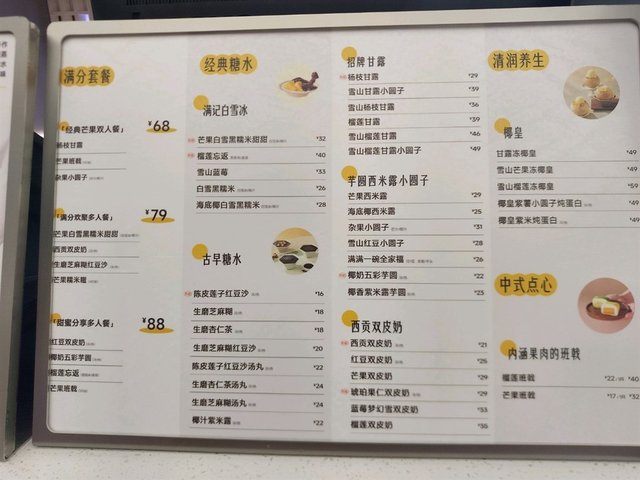 满分套餐
「经典芒果双人餐」 ¥68
杨枝甘露
芒果班戟
杂果小圆子
「满分欢聚多人餐」 ¥79
芒果白雪黑糯米甜甜
西贡双皮奶
生磨芝麻糊红豆沙
芒果糯米糍
「甜蜜分享多人餐」 ¥88
红豆双皮奶
椰奶五彩芋圆
榴莲忘返
芒果班戟
经典糖水
满记白雪冰
芒果白雪黑糯米甜甜 ¥32
榴莲忘返 ¥40
雪山蓝莓 ¥33
白雪黑糯米 ¥26
海底椰白雪黑糯米 ¥28
古早糖水
陈皮莲子红豆沙 ¥16
生磨芝麻糊 ¥18
生磨杏仁茶 ¥18
生磨芝麻糊红豆沙 ¥20
陈皮莲子红豆沙汤丸 ¥22
生磨杏仁茶汤丸 ¥24
生磨芝麻糊汤丸 ¥24
椰汁紫米露 ¥22
招牌甘露
杨枝甘露 ¥29
雪山甘露小圆子 ¥39
雪山杨枝甘露 ¥36
榴莲甘露 ¥39
雪山榴莲甘露 ¥46
雪山榴莲甘露小圆子 ¥49
芋圆西米露小圆子
芒果西米露 ¥29
海底椰西米露 ¥25
杂果小圆子 ¥31
雪山红豆小圆子 ¥28
满满一碗全家福 ¥26
椰奶五彩芋圆 ¥22
椰香紫米露芋圆 ¥23
西贡双皮奶
西贡双皮奶 ¥21
红豆双皮奶 ¥25
芒果双皮奶 ¥29
琥珀果仁双皮奶 ¥29
蓝莓梦幻雪双皮奶 ¥33
榴莲双皮奶 ¥35
清润养生
椰皇
甘露冻椰皇 ¥49
雪山芒果冻椰皇 ¥49
雪山榴莲冻椰皇 ¥59
椰皇紫薯小圆子炖蛋白 ¥49
椰皇紫米炖蛋白 ¥49
中式点心
内涵果肉的班戟
榴莲班戟 ¥22 ¥40
芒果班戟 ¥17 ¥32